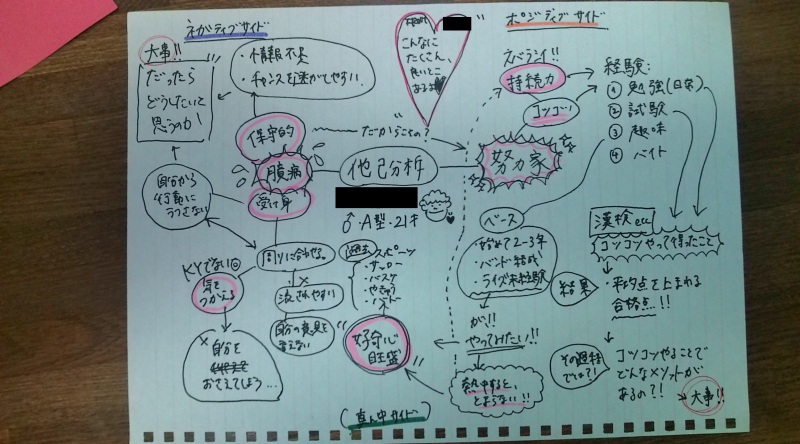 ネガティブサイド
ポジティブサイド
大事!!
だったら
どうしたいと
思うのか!
・情報不足
・チャンスを逃がしやすい
保守的
臆病
受け身
自分から
行動に
うつさない
周りに合わせる。
KYでない
気を
つかえる
×自分を
おさえてしまう…
×
流されやすい
自分の意見を
言えない
だからこその?
他己分析
♂・A型・21才
過去
スポーツ
・サッカー
・バスケ
・やきゅう
好奇心
旺盛
真ん中サイド
こんなに
たくさん、
良いとこ
あるよ
ネバライ!!
持続力
コツコツ
努力家
経験:
① 勉強(日常)
② 試験
③ 趣味
④ バイト
ベース
・始めて2~3年
・バンド結成
・ライブ未経験
が!!
やってみたい!!
熱中すると、
とまらない!!
漢検 etc
コツコツやって得たこと
結果
・平均点を上まわる
合格点!!
その過程
では?!
コツコツやることで
どんなメソットが
あるの?!
大事!!